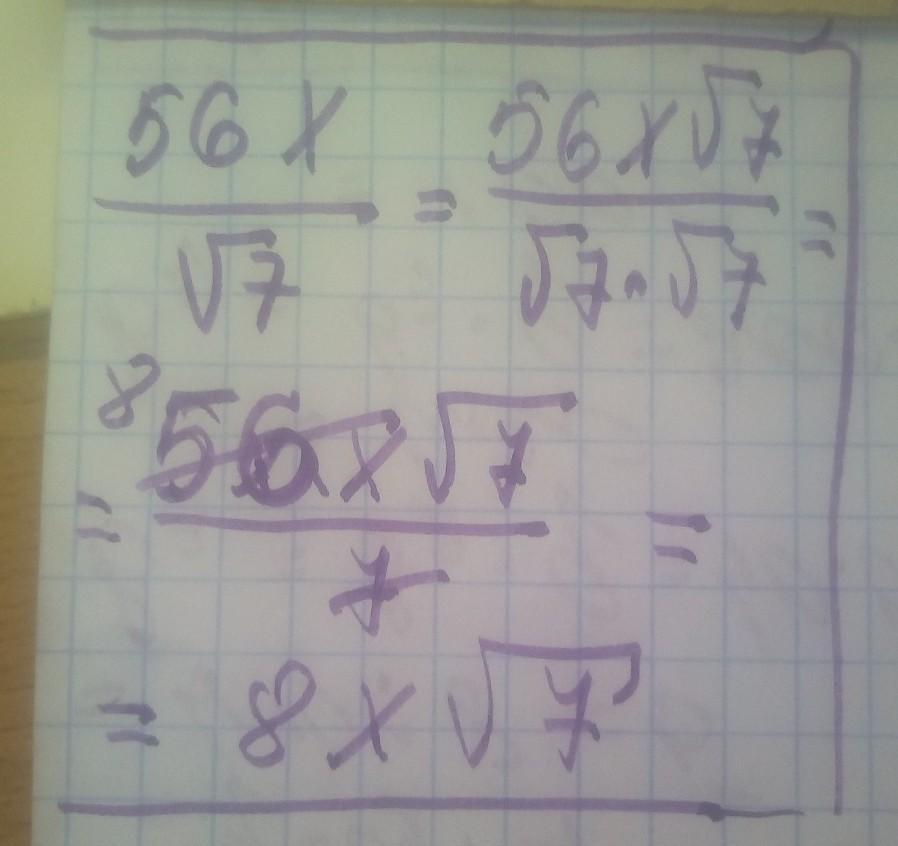 56x/√7 = 56x√7/√7·√7 =
= 8 56x√7/7 =
= 8x√7